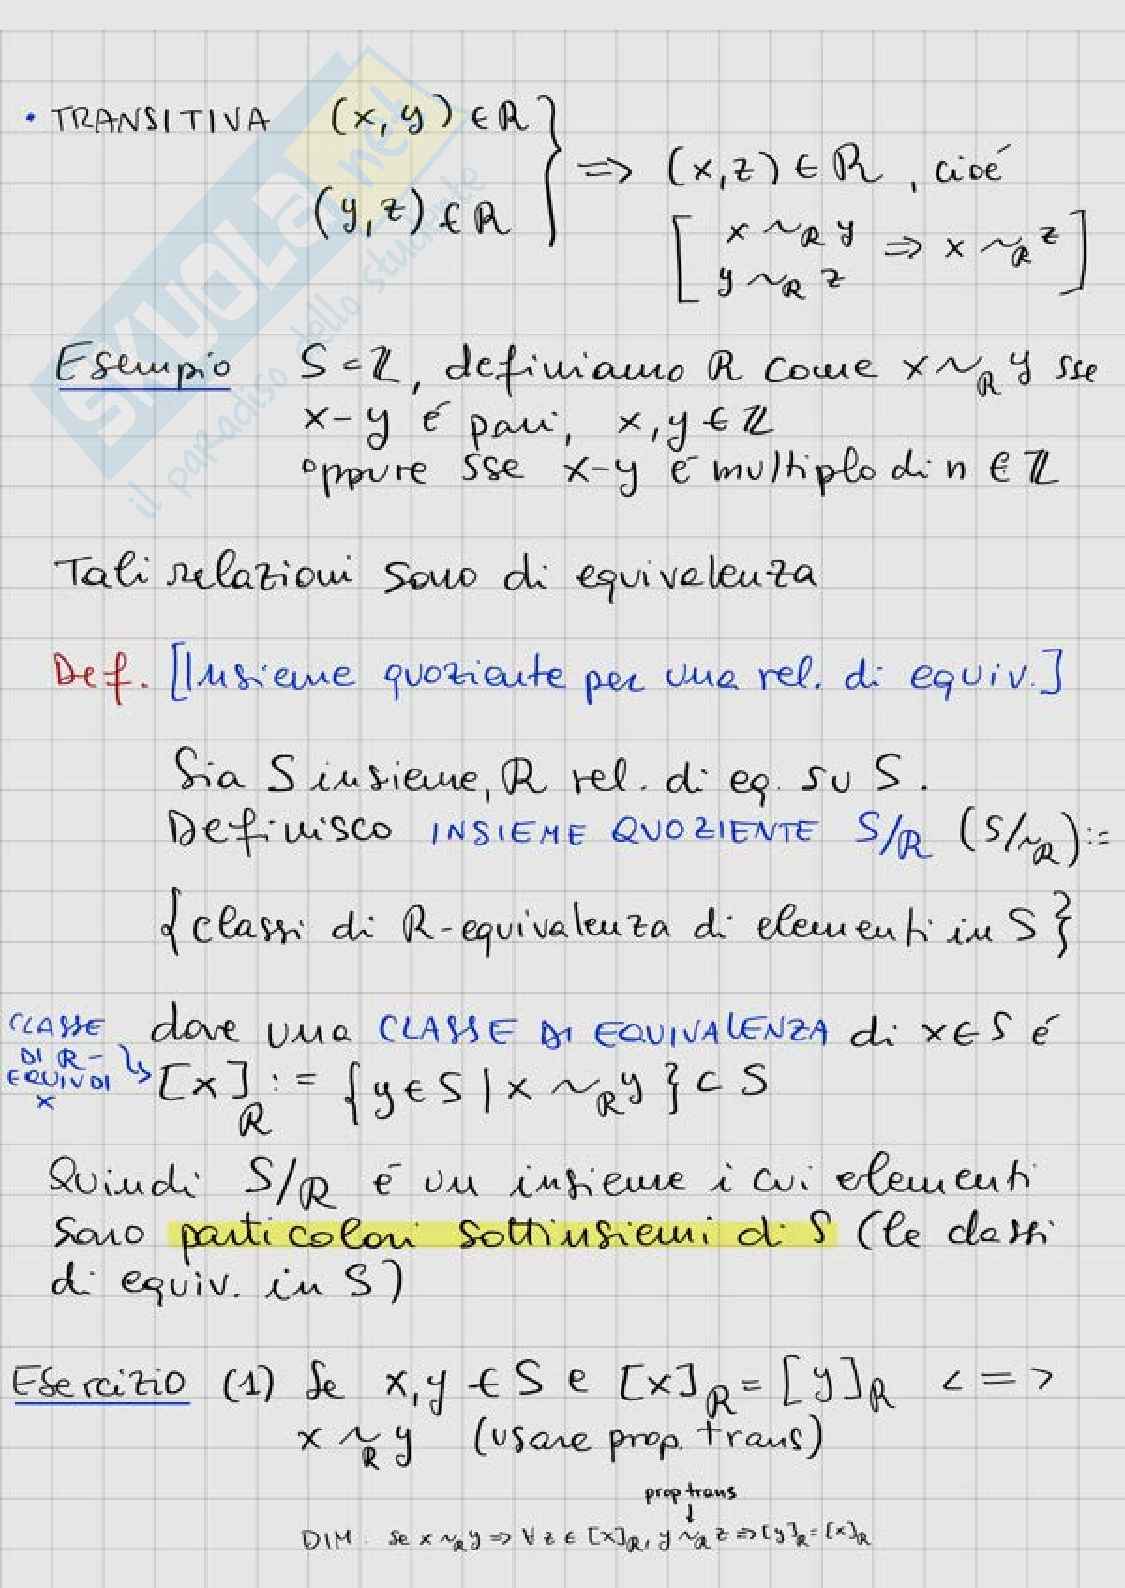 • TRANSITIVA (x, y) ∈ R
(y, z) ∈ R } => (x, z) ∈ R , cioé
[ x ~R y
y ~R z => x ~R z ]
Esempio S = ℤ, definiamo R come x ~R y sse
x - y é pari, x, y ∈ ℤ
oppure sse x-y é multiplo di n ∈ ℤ
Tali relazioni sono di equivalenza
Def. [Insieme quoziente per una rel. di equiv.]
Sia S insieme, R rel. di eq. su S.
Definisco INSIEME QUOZIENTE S/R (S/~R) :=
{classi di R-equivalenza di elementi in S}
CLASSE
DI R-
EQUIV DI
x
dove una CLASSE DI EQUIVALENZA di x ∈ S é
[x]R := {y ∈ S | x ~R y} ⊂ S
Quindi S/R é un insieme i cui elementi
sono particolari sottinsiemi di S (le classi
di equiv. in S)
Esercizio (1) Se x, y ∈ S e [x]R = [y]R <=>
x ~R y (usare prop. trans)
prop trans
↓
DIM. se x ~R y => ∀ z ∈ [x]R, y ~R z => [y]R = [x]R
SKUOLA.net
il paradiso dello studente